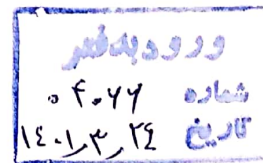 ورود به دفتر
شماره ۰۴۰۶۶
تاریخ ۱۴۰۱٫۳٫۲۴